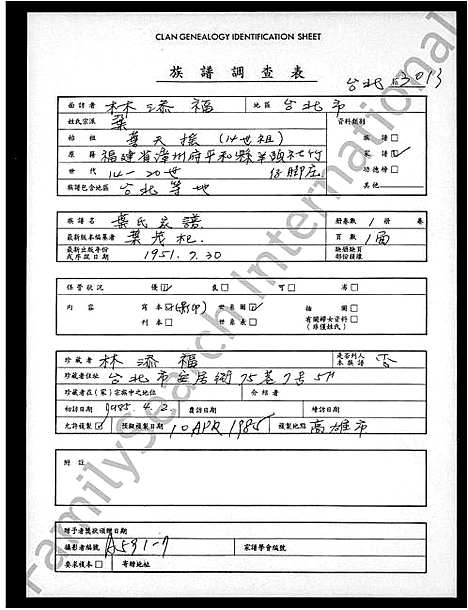 CLAN GENEALOGY IDENTIFICATION SHEET
族譜調查表
台北 53013
面訪者 林添福 地區 台北市
姓氏宗派 葉 資料類別
始祖 葉天 (14世祖) 族譜□
原籍 福建省漳州府平和縣 家譜☑
世代 14-20世 功德榜□
族譜包含地區 台北等地 其他
族譜名 葉氏家譜 冊卷數 1冊 卷
最新版本編纂者 葉茂杞 頁數 1面
最新出版年份或序跋日期 1951.7.30 缺冊缺頁部份註撰
保管狀況 優☑ 良□ 可□ 劣□
內容 寫本☑(影印) 世系圖☑ 插圖□
刊本□ 世系表□ 有關婦女資料(非僅姓氏)□
珍藏者 林添福 是否列入本族譜 否
珍藏者住址 台北市 街75巷7号5F
珍藏者在(家)宗族中之地位 介紹者
初訪日期 1985.4.2. 複訪日期 續訪日期
允許複製☑ 預期複製日期 10 APR 1985 複製地點 高雄市
附註
贈予者獎狀頒贈日期
攝影者編號 A531-7 家譜學會編號
要求複本□ 寄贈地址
FamilySearch International